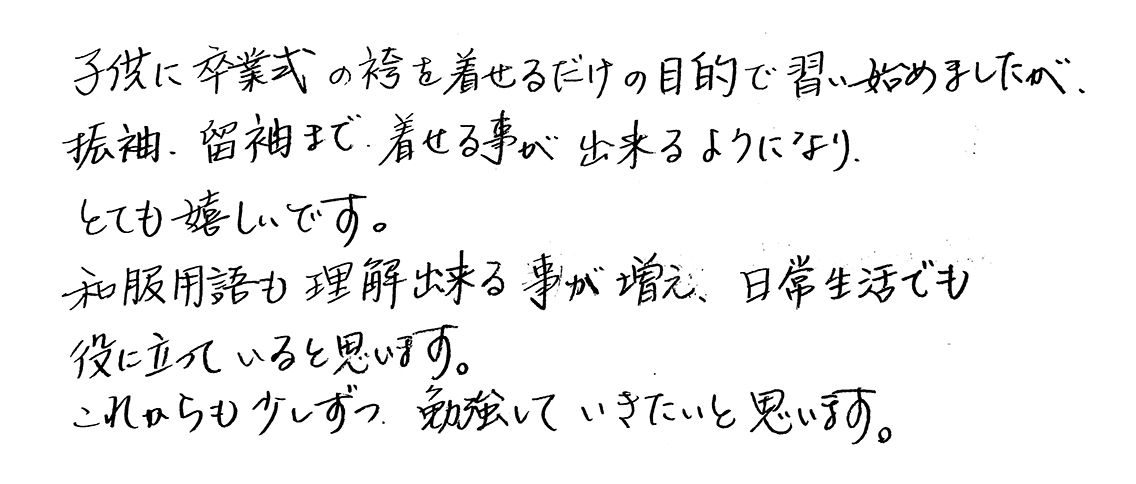 子供に卒業式の袴を着せるだけの目的で習い始めましたが、
振袖、留袖まで、着せる事が出来るようになり、
とても嬉しいです。
和服用語も理解出来る事が増え、日常生活でも
役に立っていると思います。
これからも少しずつ、勉強していきたいと思います。